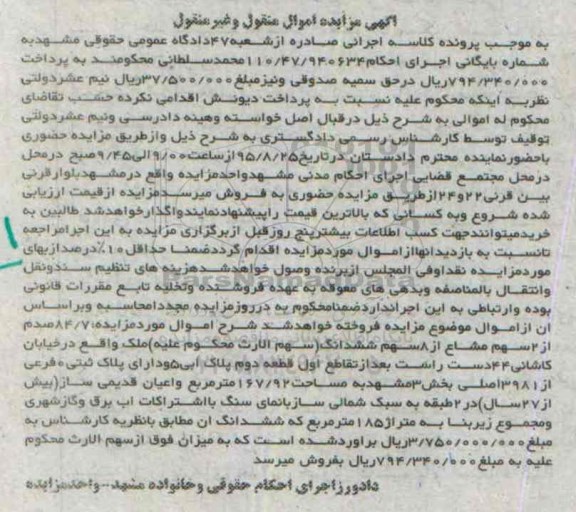 آگهی مزایده اموال منقول وغیر منقول
به موجب پرونده کلاسه اجرائی صادره ازشعبه۴۷دادگاه عمومی حقوقی مشهدبه
شماره بایگانی اجرای احکام۱۱۰/۴۷/۹۴۰۶۳۴محمدسلطانی محکومند به پرداخت
۷۹۴/۳۴۰/۰۰۰ریال درحق سمیه صدوقی ونیزمبلغ۳۷/۵۰۰/۰۰۰ریال نیم عشردولتی
نظربه اینکه محکوم علیه نسبت به پرداخت دیونش اقدامی نکرده حسب تقاضای
محکوم له اموالی به شرح ذیل درقبال اصل خواسته وهینه دادرسی ونیم عشردولتی
توقیف توسط کارشناس رسمی دادگستری به شرح ذیل وازطریق مزایده حضوری
باحضورنماینده محترم دادستان درتاریخ۹۵/۸/۲۵ازساعت۹/۰۰الی۹/۴۵صبح درمحل
درمحل مجتمع قضایی اجرای احکام مدنی مشهدواحدمزایده واقع درمشهدبلوارقرنی
بین قرنی۲۲و۲۴ازطریق مزایده حضوری به فروش میرسدمزایده ازقیمت ارزیابی
شده شروع وبه کسانی که بالاترین قیمت راپیشنهادنمایندواگذارخواهدشد طالبین به
خریدمیتوانندجهت کسب اطلاعات بیشترپنج روزقبل ازبرگزاری مزایده به این اجرامراجعه
تانسبت به بازدیدانهاازاموال موردمزایده اقدام گرددضمنا حداقل۱۰٪درصدازبهای
موردمزایده نقداوفی المجلس ازبرنده وصول خواهدشدهزینه های تنظیم سندونقل
وانتقال بالمناصفه وبدهی های معوقه به عهده فروشنده وتخلیه تابع مقررات قانونی
بوده وارتباطی به این اجرانداردضمنامحکوم به درروزمزایده مجددامحاسبه وبراساس
ان ازاموال موضوع مزایده فروخته خواهدشد شرح اموال موردمزایده:۸۴/۷صدم
از۲سهم مشاع از۸سهم ششدانگ(سهم الارث محکوم علیه)ملک واقع درخیابان
کاشانی۴۴دست راست بعدازتقاطع اول قطعه دوم پلاک ابی۵ودارای پلاک ثبتی۰فرعی
از۳۹۸۱اصلی بخش۳مشهدبه مساحت۱۶۷/۹۲مترمربع واعیان قدیمی ساز(بیش
از۲۷سال)در۲طبقه به سبک شمالی سازبانمای سنگ بااشتراکات اب برق وگازشهری
ومجموع زیربنا به متراژ۱۸۵مترمربع که ششدانگ ان مطابق بانظریه کارشناس به
مبلغ۳/۷۵۰/۰۰۰/۰۰۰ریال براوردشده است که به میزان فوق ازسهم الارث محکوم
علیه به مبلغ۷۹۴/۳۴۰/۰۰۰ریال بفروش میرسد
دادورزاجرای احکام حقوقی وخانواده مشهد--واحدمزایده